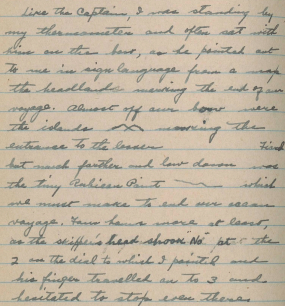 Like the Captain, I was standing by
my thermometer and often sat with
him on the bow, as he pointed out
to me in sign language from a map
the headlands marking the end of our
voyage. Almost off our bow were
the islands marking the
entrance to the lesser Fiord
but much farther and low down was
the tiny Point which
we must make to end our ocean
voyage. Four hours more at least,
as the skipper's head shook "No" at the
2 on the dial to which I pointed and
his finger travelled on to 3 and
hesitated to stop even there.